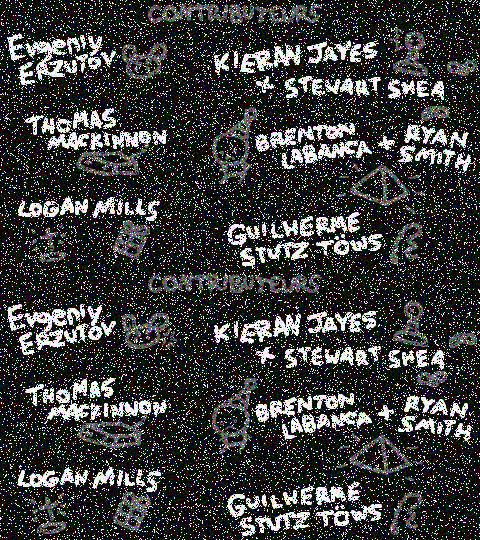 CONTRIBUTEURS
Evgeniy
ERZUTOV
KIERAN JAYES
+ STEWART SHEA
THOMAS
MACKINNON
BRENTON
LABANCA + RYAN
SMITH
LOGAN MILLS
GUILHERME
STUTZ TÖWS
CONTRIBUTEURS
Evgeniy
ERZUTOV
KIERAN JAYES
+ STEWART SHEA
THOMAS
MACKINNON
BRENTON
LABANCA + RYAN
SMITH
LOGAN MILLS
GUILHERME
STUTZ TÖWS